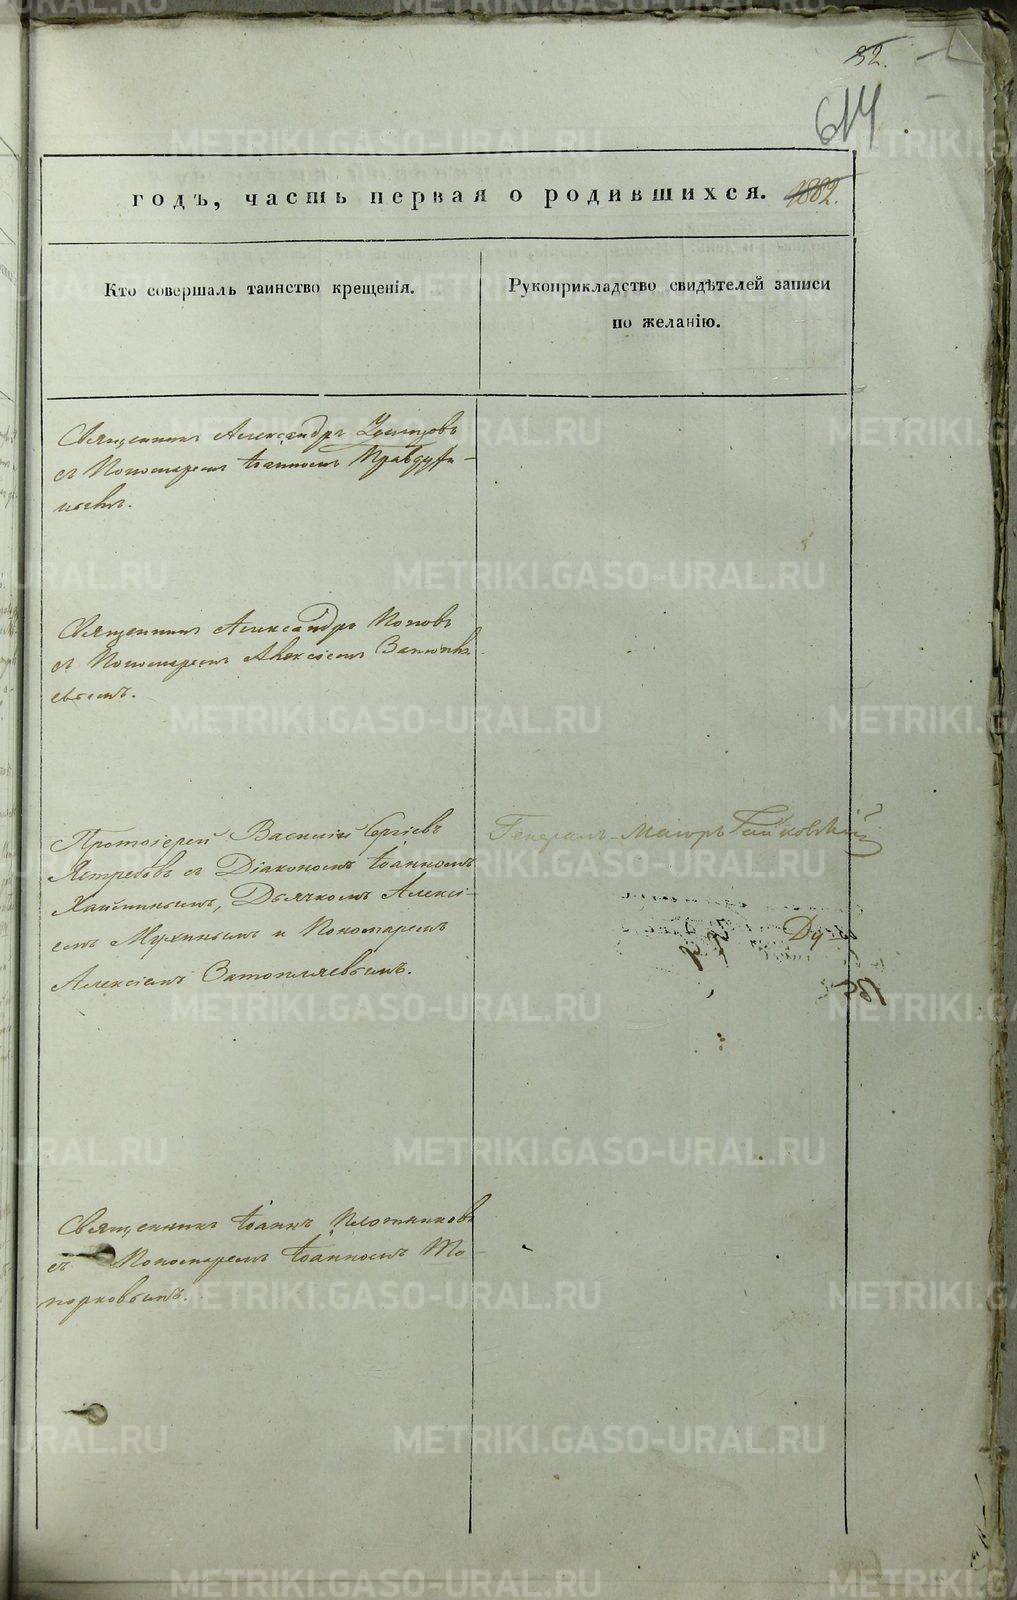 32.
614
годъ, часть первая о родившихся. 1882.
Кто совершалъ таинство крещенія.
Рукоприкладство свидѣтелей записи
по желанію.
Священникъ Александръ
съ Пономаремъ Іоанномъ Правдухи-
нымъ.
Священникъ Александръ Поповъ
съ Пономаремъ Алексіемъ
Протоіерей Василій Сергіевъ
Ястребовъ съ Діакономъ Іоанномъ
Хайминымъ, Дьячкомъ Алексі-
емъ Мухинымъ и Пономаремъ
Алексіемъ Затопляевымъ.
Генералъ-Маіоръ
Священникъ Іоаннъ Плотниковъ
съ Пономаремъ Іоанномъ То-
порковымъ.
METRIKI.GASO-URAL.RU